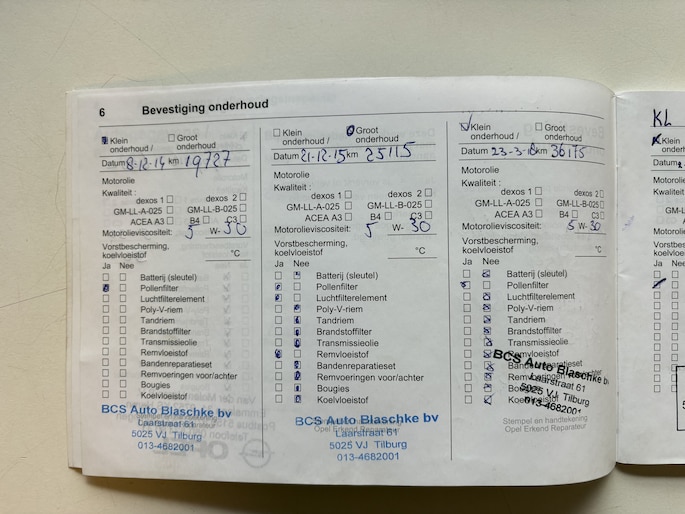 6 Bevestiging onderhoud
Klein onderhoud / Groot onderhoud
Datum 8-12-14 km 19727
Motorolie
Kwaliteit :
dexos 1 dexos 2
GM-LL-A-025 GM-LL-B-025
ACEA A3 B4 C3
Motorolieviscositeit: 5 W- 30
Vorstbescherming, koelvloeistof °C
Ja Nee
Batterij (sleutel)
Pollenfilter
Luchtfilterelement
Poly-V-riem
Tandriem
Brandstoffilter
Transmissieolie
Remvloeistof
Bandenreparatieset
Remvoeringen voor/achter
Bougies
Koelvloeistof
BCS Auto Blaschke bv
Laarstraat 61
5025 VJ Tilburg
013-4682001
Klein onderhoud / Groot onderhoud
Datum 21-12-15 km 25115
Motorolie
Kwaliteit :
dexos 1 dexos 2
GM-LL-A-025 GM-LL-B-025
ACEA A3 B4 C3
Motorolieviscositeit: 5 W- 30
Vorstbescherming, koelvloeistof °C
Ja Nee
Batterij (sleutel)
Pollenfilter
Luchtfilterelement
Poly-V-riem
Tandriem
Brandstoffilter
Transmissieolie
Remvloeistof
Bandenreparatieset
Remvoeringen voor/achter
Bougies
Koelvloeistof
BCS Auto Blaschke bv
Opel Erkend Reparateur
Laarstraat 61
5025 VJ Tilburg
013-4682001
Klein onderhoud / Groot onderhoud
Datum 23-3-18 km 36175
Motorolie
Kwaliteit :
dexos 1 dexos 2
GM-LL-A-025 GM-LL-B-025
ACEA A3 B4 C3
Motorolieviscositeit: 5 W- 30
Vorstbescherming, koelvloeistof °C
Ja Nee
Batterij (sleutel)
Pollenfilter
Luchtfilterelement
Poly-V-riem
Tandriem
Brandstoffilter
Transmissieolie
Remvloeistof
Bandenreparatieset
Remvoeringen voor/achter
Bougies
Koelvloeistof
BCS Auto Blaschke bv
Laarstraat 61
5025 VJ Tilburg
013-4682001
Stempel en handtekening
Opel Erkend Reparateur
KL
Klein